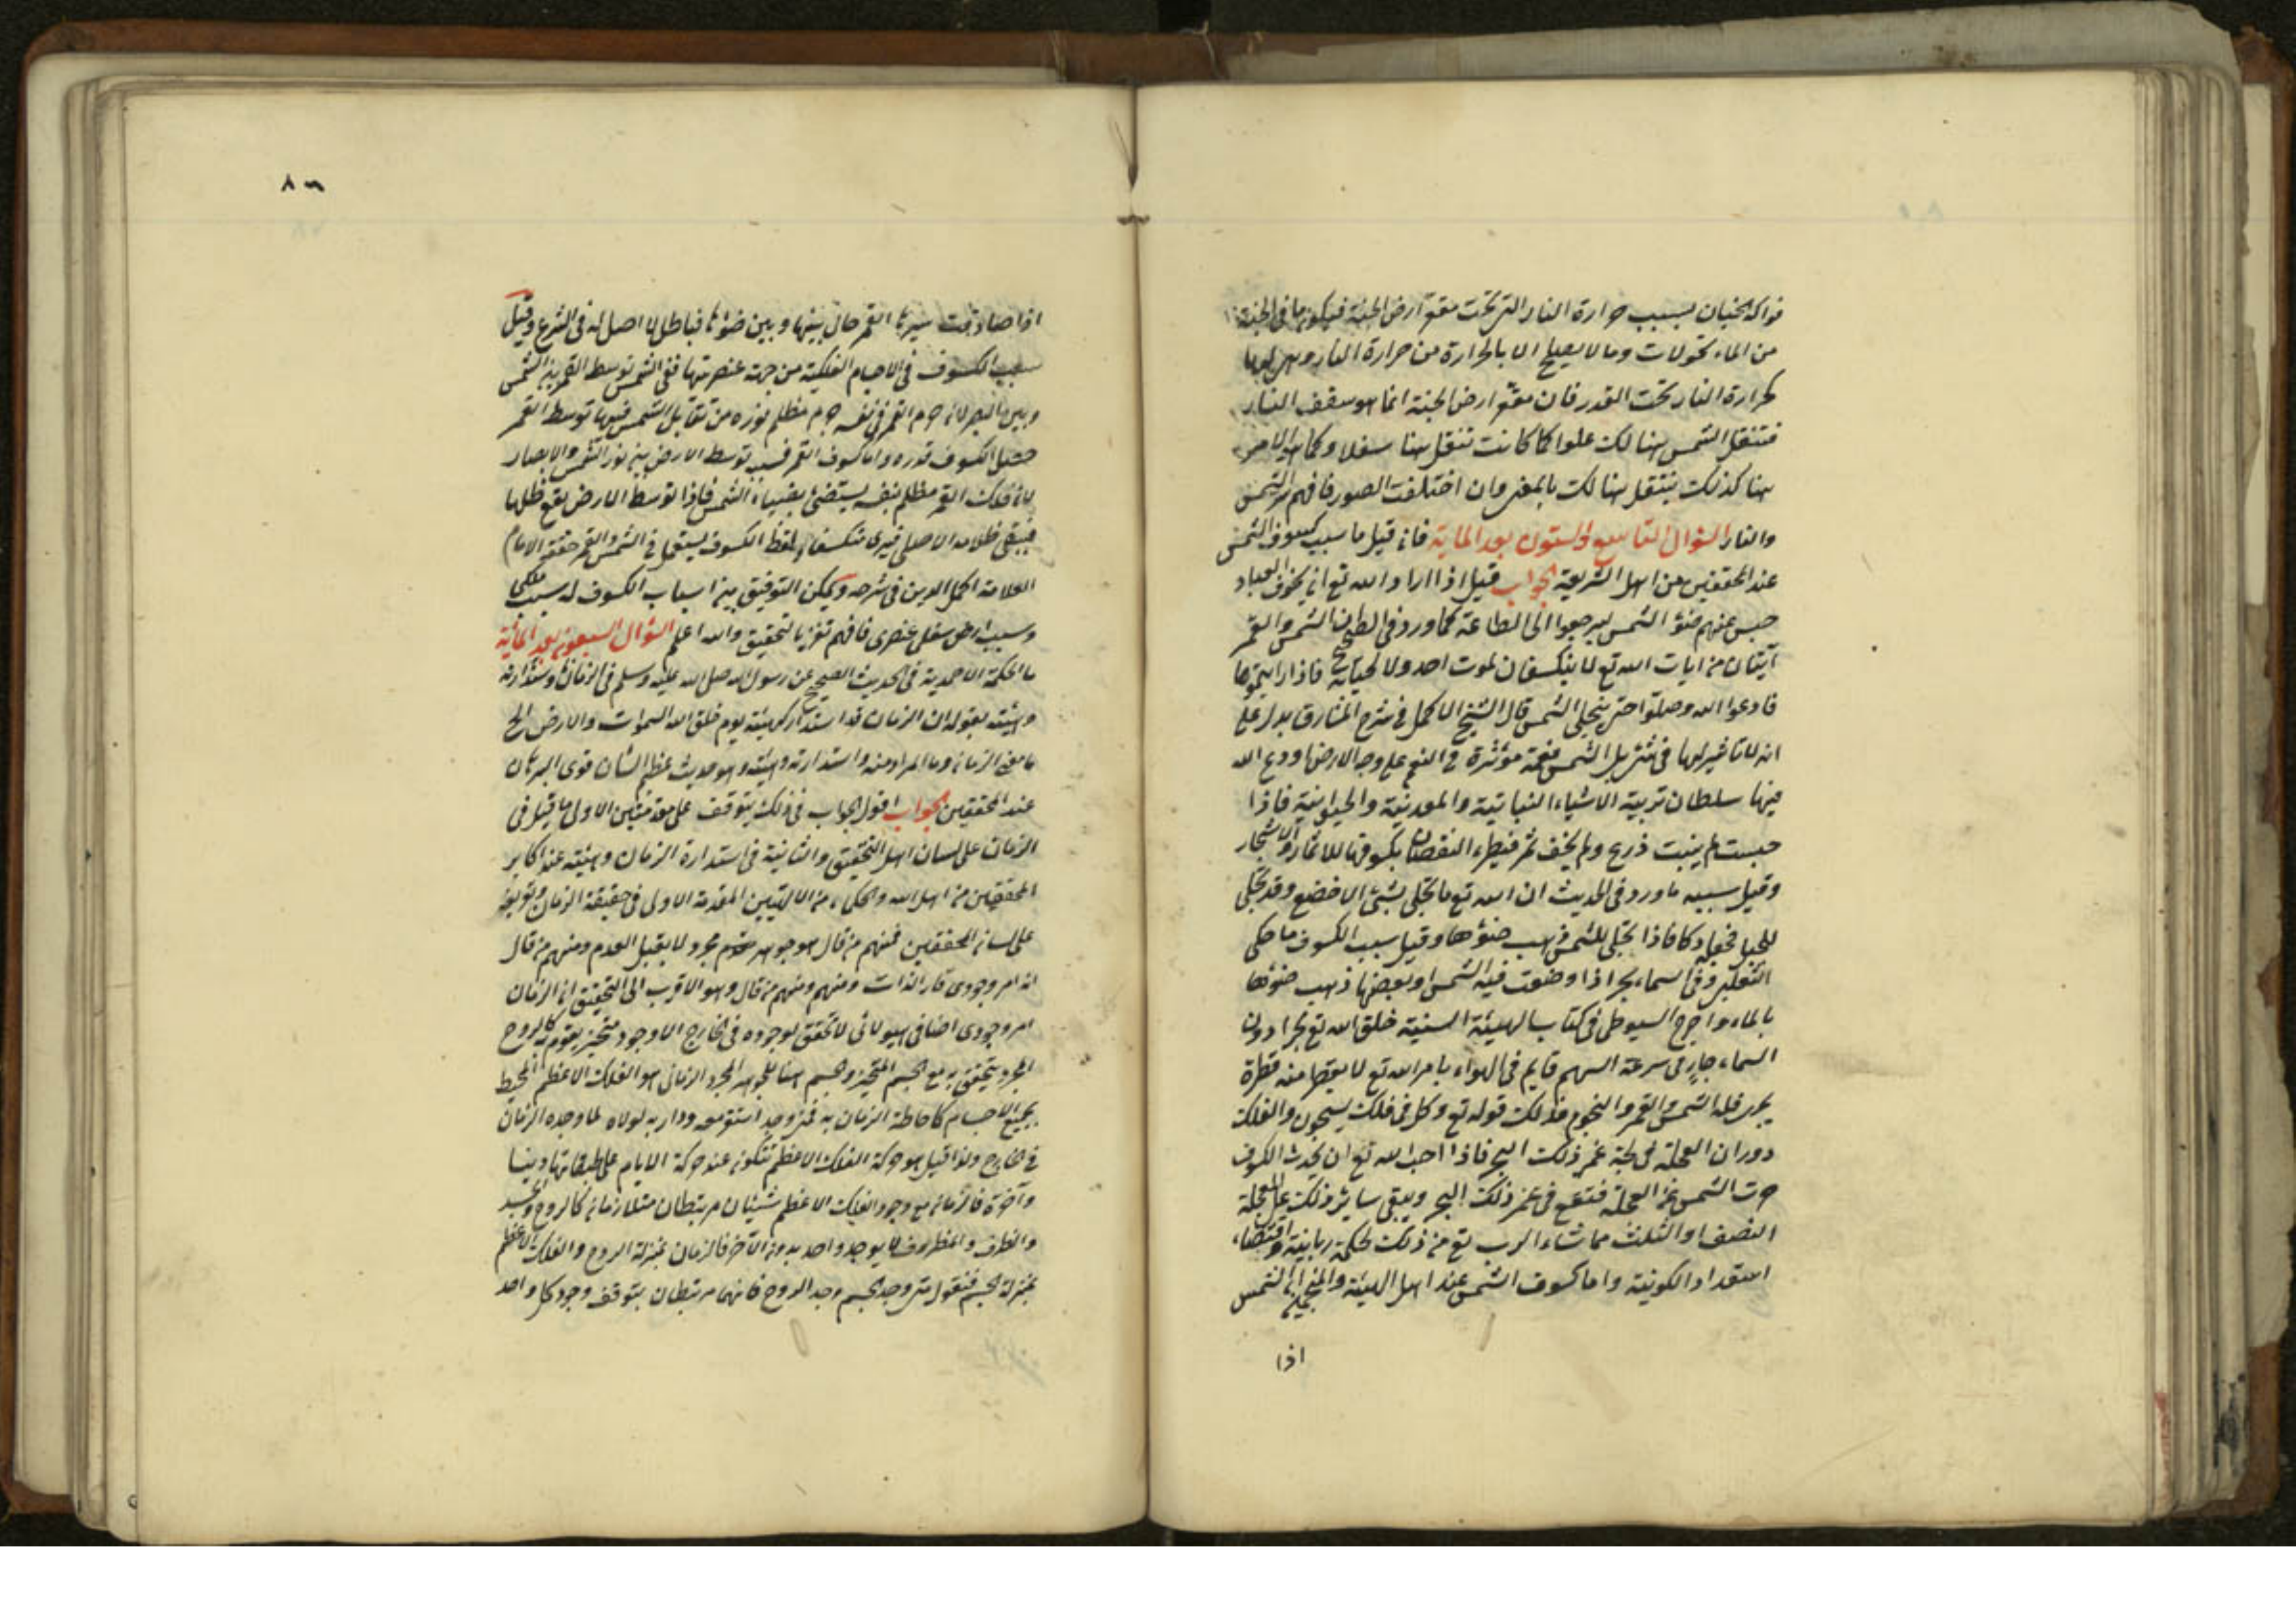 فواكه الجنان بسبب حرارة النار التى تحت مقعر ارض الجنة فيكون ما فى الجنة
من الماء كولات وما لا يصلح الا بالحرارة من حرارة النار وهى لها
كحرارة النار تحت القدر فان مقعر ارض الجنة انما هو سقف النار
فتنتقل الشمس هنالك علوا كما كانت تنتقل هنا سفلا وكما هو الامر
هنا كذلك ينتقل هنالك بالمعنى وان اختلفت الصور فافهم سر الشمس
والنار السؤال التاسع والستون بعد الماية فان قيل ما سبب كسوف الشمس
عند المحققين من اهل الشريعة الجواب قيل اذا اراد الله تع ان يخوف العباد
حبس عنهم ضوء الشمس ليرجعوا الى الطاعة كما ورد فى الصحيح ان الشمس والقمر
آيتان من ايات الله تع لا ينكسفان لموت احد ولا لحياته فاذا رايتموها
فادعوا الله وصلوا حتى ينجلى الشمس قال الشيخ الاكمل فى شرح المشارق يدل على
ان لانا غيرلها فى تنزيل الشمس نعمة مؤثرة فى النعم على وجه الارض اودع الله
فيها سلطان تربية الاشياء النباتية والمعدنية والحيوانية فاذا
حبست لم ينبت ذرع ولم يخف ثمر فيطرء النقصان بكسوفها للاثمار والاشجار
وقيل سببه ما ورد فى الحديث ان الله تع ما تجلى بشئ الا خضع وقد تجلى
للجبل فجعله دكا فاذا تجلى للشمس ذهب ضوؤها وقيل سبب الكسوف ما حكى
الثعلبى وفى السماء بحر اذا وضعت فيه الشمس او بعضها ذهب ضوؤها
بالماء واخرج السيوطى فى كتاب الهيئة السنية خلق الله تع بحرا دون
السماء جار فى سرعة السهم قايم فى الهواء بامر الله تع لا يقطر منه قطرة
يجرى فيه الشمس والقمر والنجوم فذلك قوله تع وكل فى فلك يسبحون والفلك
دوران العجلة فى لجة غمر ذلك البحر فاذا احب الله تع ان يحدث الكسوف
حرت الشمس عن العجلة فتقع فى غمر ذلك البحر ويبقى ساير ذلك على العجلة
النصف او الثلث مما شاء الرب تع من ذلك لحكمة ربانية واقتضاء
استعداد الكونية واما كسوف الشمس عند اهل الهيئة والمنجمين ان الشمس
اذا
٨٦
اذا صادفت سيرها القمر حال بينها وبين ضوئها فباطل لا اصل له فى الشرع وقيل
سبب الكسوف فى الاجسام الفلكية من جهة عنصريتها ففى الشمس توسط القمر بين الشمس
وبين البصر لان جرم القمر فى نفسه جرم مظلم نوره من تقابل الشمس فمهما توسط القمر
حصل الكسوف قدره واما كسوف القمر فسببه توسط الارض بين نور الشمس والابصار
لان فلك القمر مظلم بنفسه يستضئ بضياء الشمس فاذا توسط الارض يقع ظلها
فيبقى ظلامه الاصلى فيرى منكسفا ولفظ الكسوف يستعمل فى الشمس والقمر حققه الامام
العلامة اكمل الدين فى شرحه ويمكن التوفيق بين اسباب الكسوف له سبب فلكى
وسبب ارضى سفلى عنصرى فافهم تفز بالتحقيق والله اعلم السؤال السبعون بعد المائية
ما الحكمة الاحمدية فى الحديث الصحيح عن رسول الله صلى الله عليه وسلم فى الزمان واستدارته
وهيئته بقوله ان الزمان قد استدار كهيئته يوم خلق الله السموات والارض الخ
ما معنى الزمان وما المراد منه واستدارته وهيئته وهو حديث عظيم الشان قوى البرهان
عند المحققين الجواب اقول الجواب فى ذلك يتوقف على مقدمتين الاولى ما قيل فى
الزمان على لسان اهل التحقيق والثانية فى استدارة الزمان وهيئته عند اكابر
المحققين من اهل الله والحكماء من الالهيين المقدمة الاولى فى حقيقة الزمان وتعريفه
على لسان المحققين فمنهم من قال هو جوهر مجرد لا يقبل العدم ومنهم من قال
انه امر وجودى قار الذات ومنهم ومنهم من قال وهو الاقرب الى التحقيق ان الزمان
امر وجودى اضافى هيولانى لا تحقق لوجوده فى الخارج الا وجود متحيز يقوم به كالروح
المجرد يتحقق به مع الجسم المتحيز وجسم هنا للجوهر المجرد الزمانى هو الفلك الاعظم المحيط
بجميع الاجسام كاحاطة الزمان به فمتى وجد استوت معه ودار به لولاه لما وجده الزمان
فى الخارج ولذا قيل هو حركة الفلك الاعظم تتكون عند حركة الايام على طبقاتها دينا
وآخرة فالزمان مع وجود الفلك الاعظم شيئان مرتبطان متلازمان كالروح والجسد
والظرف والمظروف لا يوجد واحد بدون الآخر فالزمان بمنزلة الروح والفلك الاعظم
بمنزلة الجسم فنقول متى وجد الجسم وجد الروح فانهما مرتبطان يتوقف وجود كل واحد